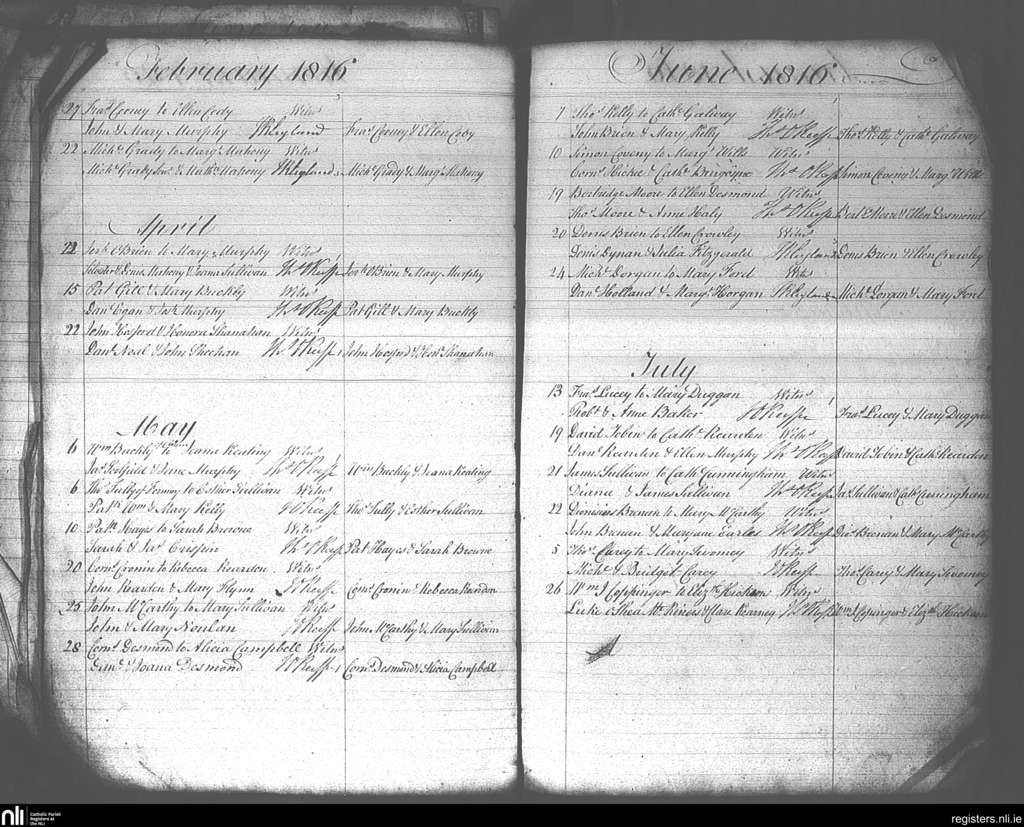 February 1816
27 Fras. Cooney to Ellen Cody Witns
John & Mary Murphy Fras. Cooney & Ellen Cody
22 Michl. Grady to Margt. Mahony Witns
Michl. Grady & Mathw. Mahony Michl. Grady & Margt. Mahony
April
22 Jerh. O'Brien to Mary Murphy Witns
& Denis Mahony & Sullivan Ths. O'Keeffe Jerh. O'Brien & Mary Murphy
15 Pat Gill & Mary Buckly Witns
Danl. Egan & Murphy Ths. O'Keeffe Pat Gill & Mary Buckly
22 John Hosford & Honora Shanahan Witns
Danl. Neal & John Sheehan Ths. O'Keeffe John Hosford & Honr. Shanahan
May
6 Wm. Buckly to Joana Keating Witns
Jas. & Jane Murphy Ths. O'Keeffe Wm. Buckly & Joana Keating
6 Ths. Tully of Fermoy to Esther Sullivan Witns
Patk. & Mary Kelly O'Keeffe Ths. Tully & Esther Sullivan
10 Patk. Hayes to Sarah Browne Witns
Sarah & Jas. Crispin Ths. O'Keeffe Pat Hayes & Sarah Browne
20 Corns. Cronin to Rebecca Reardon Witns
John Reardon & Mary Flynn O'Keeffe Corns. Cronin & Rebecca Reardon
25 John McCarthy to Mary Sullivan Witns
John & Mary Nonlan O'Keeffe John McCarthy & Mary Sullivan
28 Corns. Desmond to Alicia Campbell Witns
Danl. & Joana Desmond O'Keeffe Corns. Desmond & Alicia Campbell
June 1816
7 Thos. Kelly to Cath. Galway Witns
John Brien & Mary Kelly Ths. O'Keeffe Thos. Kelly & Cath. Galway
10 Simon Coveny to Margt. Wills Witns
Corns. Hickie & Cath. Burgoyne Ths. O'Keeffe Simon Coveny & Margt. Wills
19 Moore to Ellen Desmond Witns
Thos. Moore & Anne Haly Ths. O'Keeffe Moore & Ellen Desmond
20 Denis Brien to Ellen Crowley Witns
Denis & Julia Fitzgerald Denis Brien & Ellen Crowley
24 Michl. Dorgan to Mary Ford Witns
Danl. Holland & Margt. Horgan Michl. Dorgan & Mary Ford
July
13 Fras. Lucey to Mary Duggan Witns
Robt. & Anne Baker O'Keeffe Fras. Lucey & Mary Duggan
19 David Tobin to Cath. Rearden Witns
Danl. Rearden & Ellen Murphy Ths. O'Keeffe David Tobin & Cath. Rearden
21 James Sullivan to Cath. Cunningham Witns
Diana & James Sullivan Ths. O'Keeffe Jas. Sullivan & Cath. Cunningham
22 Dionisius Brenen to Mary McCarthy Witns
John Brenen & Maryane Earles Ths. O'Keeffe Dis. Brenen & Mary McCarthy
5 Thos. Carey to Mary Twomey Witns
Michl. & Bridget Carey O'Keeffe Thos. Carey & Mary Twomey
26 Wm. J Coppinger to Elizth. Hickson Witns
Luke Shea & Clare Kearney Ths. O'Keeffe Wm. J Coppinger & Elizth. Hickson
nli Catholic Parish Registers at the NLI
registers.nli.ie